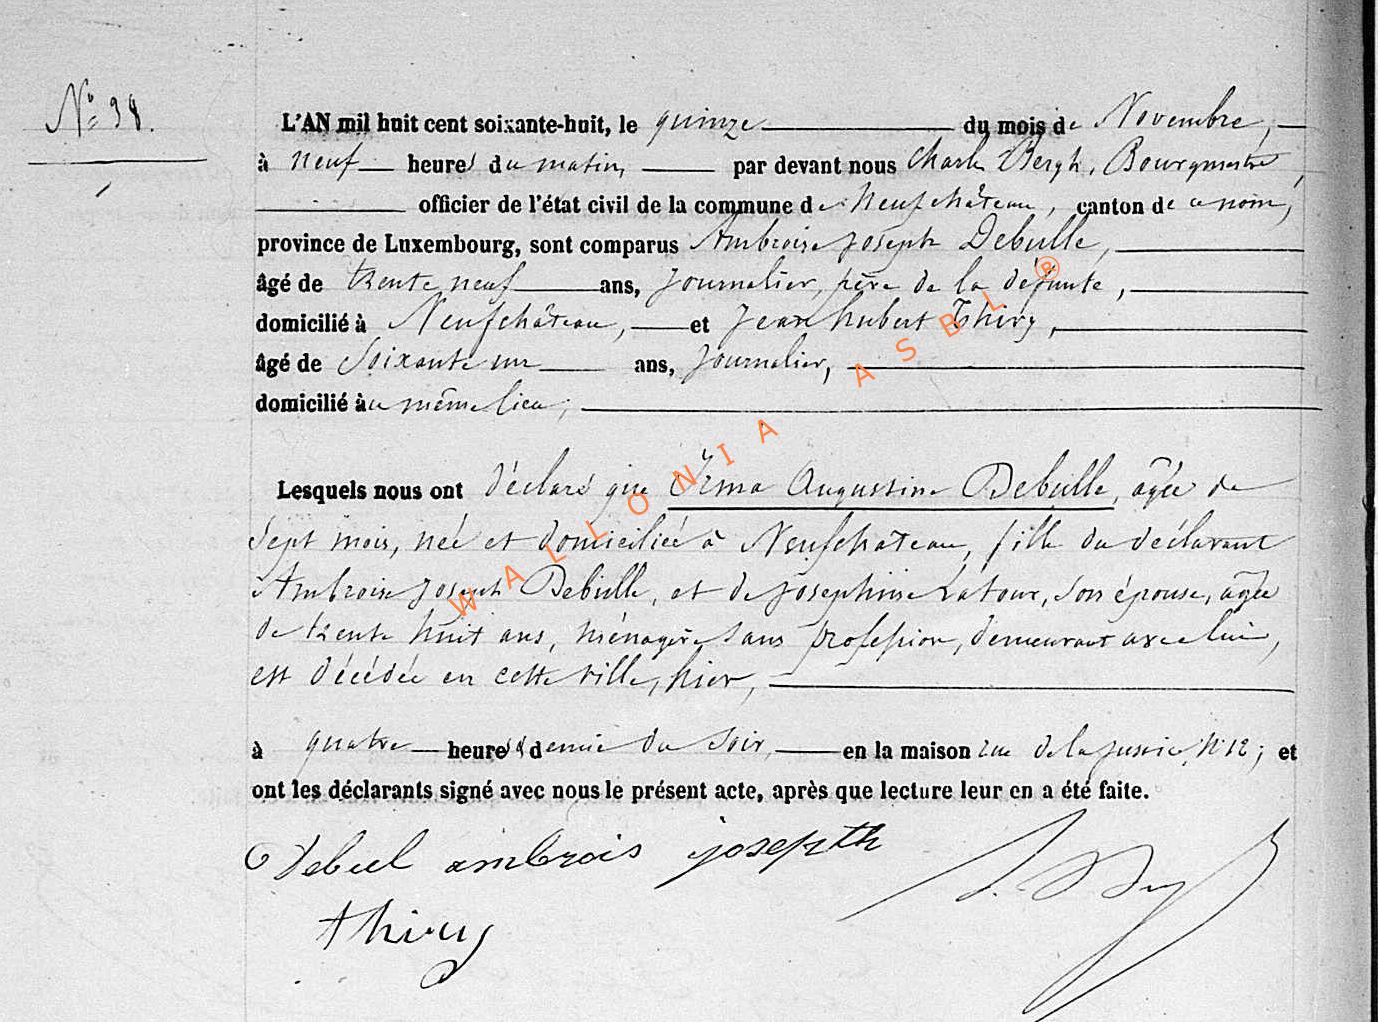 N° 98.
L'AN mil huit cent soixante-huit, le quinze du mois de Novembre,
à neuf heures du matin, par devant nous Charles Bergh, Bourgmestre,
officier de l'état civil de la commune de Neufchâteau, canton de ce nom,
province de Luxembourg, sont comparus Ambroise Joseph Debulle,
âgé de trente neuf ans, journalier, père de la défunte,
domicilié à Neufchâteau, et Jean hubert Thiry,
âgé de Soixante un ans, Journalier,
domicilié au même lieu;
Lesquels nous ont déclaré que Irma Augustine Debulle, agée de
Sept mois, née et domiciliée à Neufchateau, fille du déclarant
Ambroise Joseph Debulle, et de Josephine Latour, son épouse, agée
de trente huit ans, ménagère sans profession, demeurant avec lui,
est décédée en cette ville, hier,
à quatre heures & demie du Soir, en la maison rue de la justice, N° 12; et
ont les déclarants signé avec nous le présent acte, après que lecture leur en a été faite.
Debul ambrois josepth
thiry
WALLONIA ASBL ®